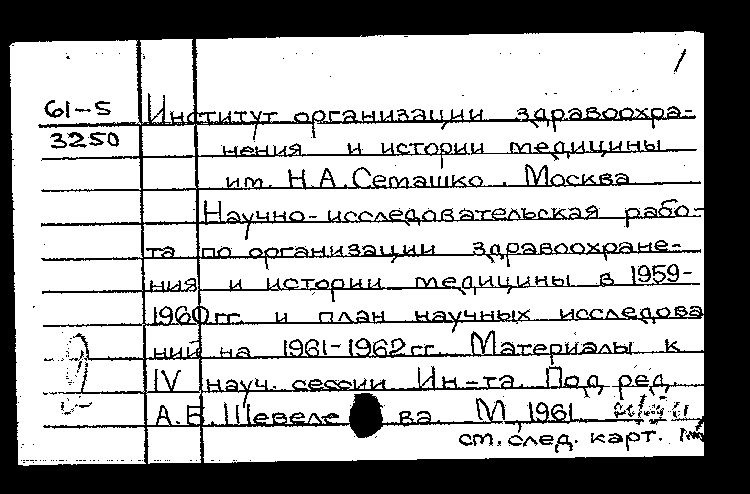 1
61-5
3250
Институт организации здравоохра-
нения и истории медицины
им. Н.А. Семашко. Москва
Научно-исследовательская рабо-
та по организации здравоохране-
ния и истории медицины в 1959-
1960 гг. и план научных исследова
ний на 1961-1962 гг. Материалы к
IV науч. сессии Ин-та. Под ред.
А.Б. Шевелева М, 1961
см. след. карт.